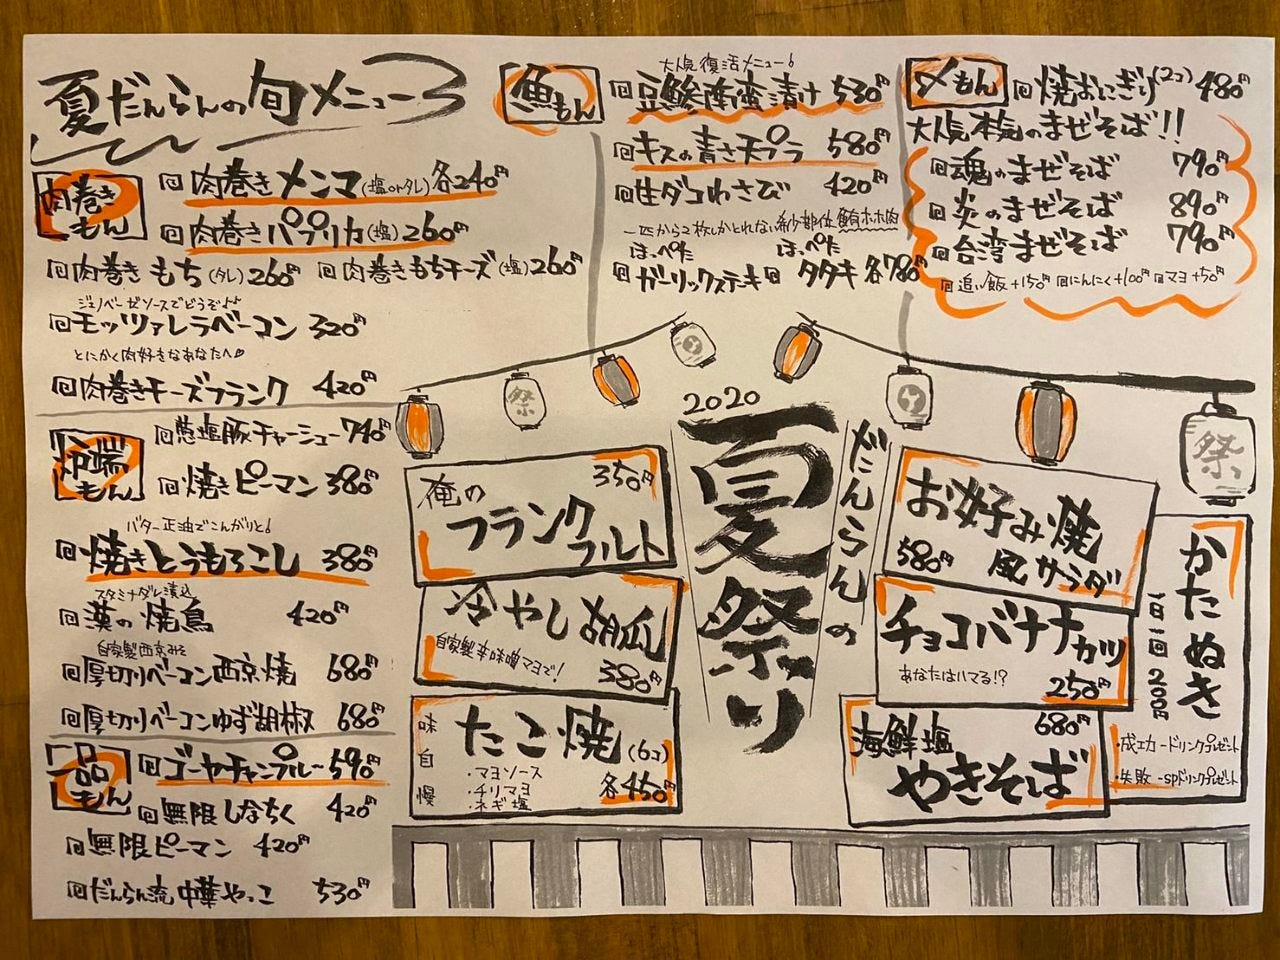 夏だんらんの旬メニュー
肉巻きもん
回肉巻きメンマ(塩orタレ)各240円
回肉巻きパプリカ(塩)260円
回肉巻きもち(タレ)260円 回肉巻きもちチーズ(塩)260円
ジェノベーゼソースでどうぞ♪
回モッツァレラベーコン 320円
とにかく肉好きなあなたへ
回肉巻きチーズフランク 420円
炉端もん
回葱塩豚チャーシュー740円
回焼きピーマン 380円
バター正油でこんがりと!
回焼きとうもろこし 380円
スタミナダレ漬込
回漢の焼鳥 420円
自家製西京みそ
回厚切りベーコン西京焼 680円
回厚切りベーコンゆず胡椒 680円
一品もん
回ゴーヤチャンプルー590円
回無限しなちく 420円
回無限ピーマン 420円
回だんらん流中華やっこ 530円
魚もん
大人気復活メニュー!
回豆鯵南蛮漬け 530円
回キスの青さ天プラ 580円
回生ダコわさび 420円
一匹から2枚しかとれない希少部位 鮪ホホ肉
ほっぺた ほっぺた
回ガーリックステーキ回タタキ 各780円
〆もん
回焼おにぎり(2コ)480円
大人気本気のまぜそば!!
回魂のまぜそば 790円
回炎のまぜそば 890円
回台湾まぜそば 790円
回追い飯+150円 回にんにく+100円 回マヨ+50円
祭
祭
2020
だんらんの
夏祭り
俺の
フランクフルト
350円
冷やし胡瓜
自家製辛味噌マヨで!
380円
味自慢
たこ焼(6コ)
・マヨソース
・チリマヨ
・ネギ塩
各450円
お好み焼
風サラダ
580円
チョコバナナカツ
あなたはハマる!?
250円
海鮮塩
やきそば
680円
かたぬき
一日一回200円
・成エカードリンクプレゼント
・失敗-spドリンクプレゼント